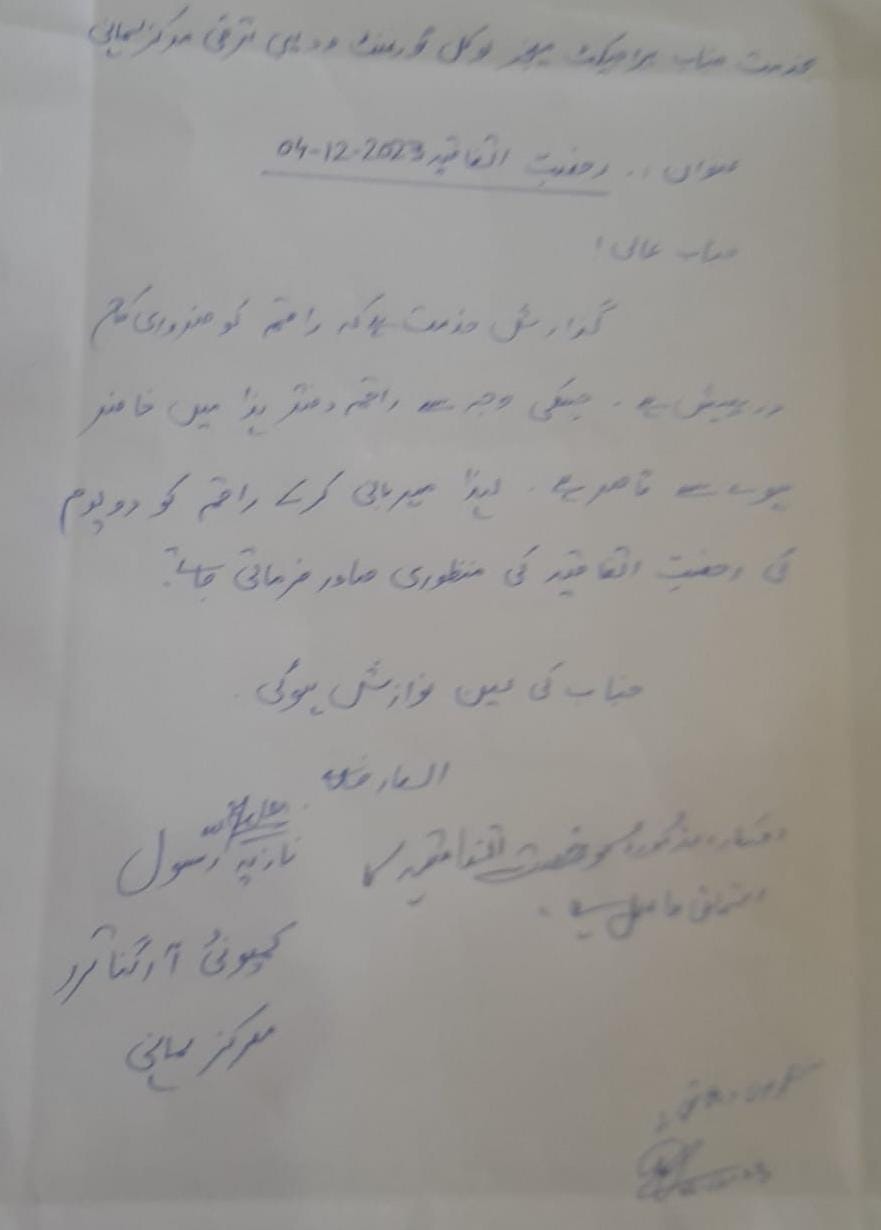 بخدمت جناب پراجیکٹ مینجر لوکل گورنمنٹ و دیہی ترقی مرکز سماہنی
عنوان :. رخصت اتفاقیہ 04-12-2023
جناب عالی!
گزارش خدمت ہے کہ راقم کو ضروری کام
درپیش ہے۔ جسکی وجہ سے راقم دفتر ہذا میں حاضر
ہونے سے قاصر ہے۔ لہذا مہربانی کر کے راقم کو دو یوم
کی رخصت اتفاقیہ کی منظوری صادر فرمائی جائے۔
جناب کی عین نوازش ہوگی۔
العارض
نازیہ رسول
کمیونٹی آرگنائزر
مرکز سماہنی
مذکورہ کو رخصت اتفاقیہ کا